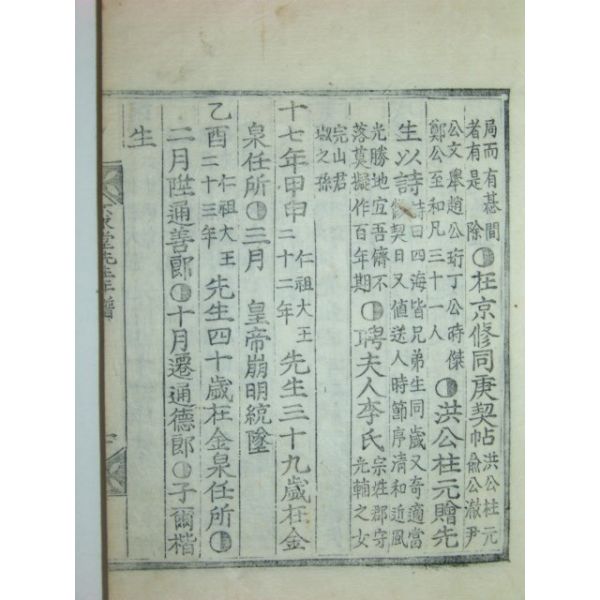 局而有碁間
者有是除
在京修同庚契帖
洪公柱元
兪公澈尹
公文擧趙公珩丁公時傑
鄭公至和凡三十一人
洪公柱元贈先
生以詩
詩曰四海皆兄弟生同歲又奇適當
契日又値送人時節序淸和近風
光勝地宜吾儕不
落莫擬作百年期
聘夫人李氏
宗姓郡守
光輔之女
完山君
之孫
十七年甲申
仁祖大王
二十二年
先生三十九歲在金
泉任所
三月
皇帝崩明統墜
乙酉
仁祖大王
二十三年
先生四十歲在金泉任所
二月陞通善郞
十月遷通德郞
子爾楷
生
堂先生年譜